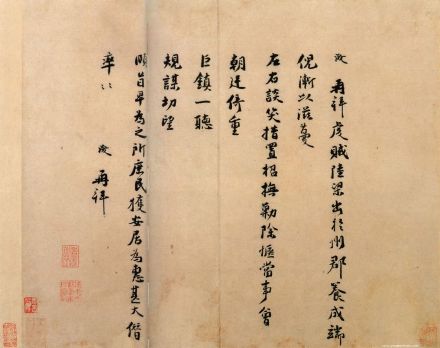 浚再拜虔賊陸梁出於州郡養成端
倪漸以滋蔓
左右談笑措置招撫勦除愜當事會
朝廷倚重
巨鎮一聽
規謀切望
明旨早為之所庶民獲安居為惠甚大僭
率〻 浚再拜